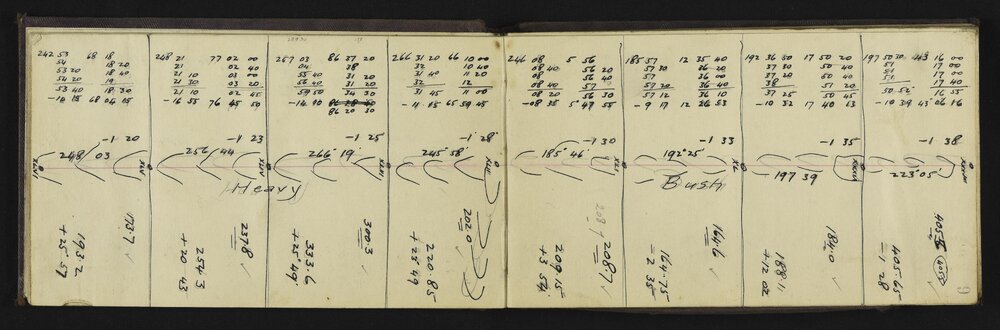 242 53 68 18
54 18 20
53 20 18 40
54 20 19
53 40 18 30
-1 20
248/03
XLVI
173.7
193.2
+25°57
248 21 77 02 00
21 02 40
21 10 03 00
21 30 03 20
21 10 02 45
-16 55 76 45 50
-1 23
256/44
XLV
Heavy
237.8
254.3
+20°43
257 03 86 37 20
04 38
55 40 31 20
56 40 31 20
59 50 34 30
86 20 30
-1 25
266° 19.
300.3
333.6
+25°49
266 31 20 66 10 00
32 10 40
31 40 11 20
32 12
31 45 11 00
65 59 45
-1 28
245° 58'
202.0
220.85
+25°49
246 08 5 56
08 40 56 20
08 40 56
08 40 57
08 20 56 30
-08 35 5° 47 55
-1 30
185° 46'
XLI
208 7
208.7
209.15
+3°54
185 57 12 35 40
57 30 36 20
57 36 00
57 30 36 40
57 12 36 10
-9 17 12 26 53
-1 33
192° 25'
XL
Bush
164.6
164.75
-2 35
192 36 50 17 50 20
37 30 50 40
37 20 50 40
38 51 20
37 25 50 45
-10 32 17 40 13
-1 35
197 39
184.0
188.11
+12 02
197 50 30 43 16 00
51 17 00
51 17 00
51 17 40
16 55
-10 39 43° 06 16
-1 38
223° 05'
4055
405.65
-1 28
9